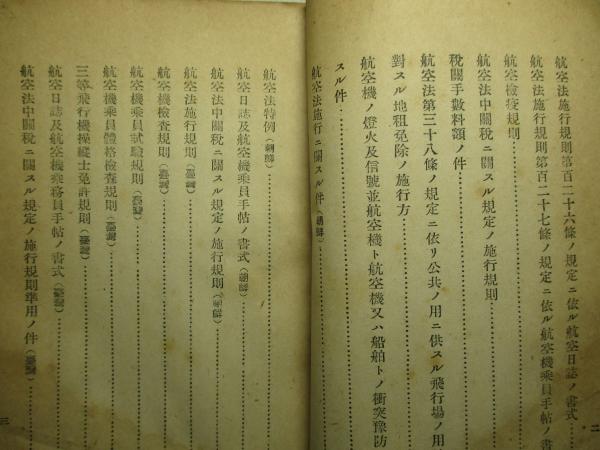 二
航空法施行規則第百二十六條ノ規定ニ依ル航空日誌ノ書式
航空法施行規則第百二十七條ノ規定ニ依ル航空機乘員手帖ノ書
航空檢疫規則
航空法中關稅ニ關スル規定ノ施行規則
稅關手數料額ノ件
航空法第三十八條ノ規定ニ依リ公共ノ用ニ供スル飛行場ノ用
對スル地租免除ノ施行方
航空機ノ燈火及信號並航空機ト航空機又ハ船舶トノ衝突豫防
スル件
航空法施行ニ關スル件(朝鮮)
航空法特例(朝鮮)
航空日誌及航空機乘員手帖ノ書式(朝鮮)
航空法中關稅ニ關スル規定ノ施行規則(朝鮮)
航空法施行規則
航空機檢查規則
航空機乘員試驗規則
航空機乘員體格檢查規則
三等飛行機操縱士免許規則
航空日誌及航空機乘務員手帖ノ書式
航空法中關稅ニ關スル規定ノ施行規則準用ノ件
三